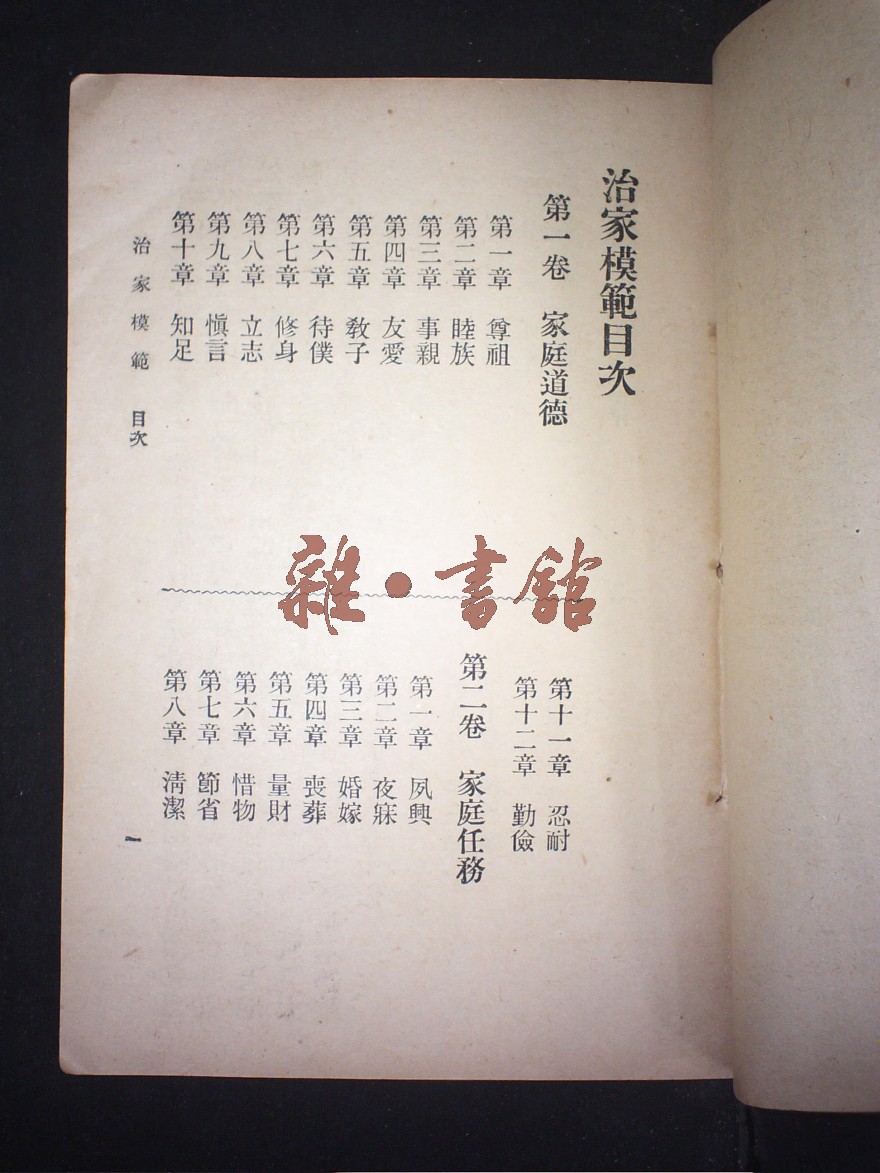 治家模範目次
第一卷 家庭道德
第一章 尊祖
第二章 睦族
第三章 事親
第四章 友愛
第五章 教子
第六章 待僕
第七章 修身
第八章 立志
第九章 愼言
第十章 知足
第十一章 忍耐
第十二章 勤儉
第二卷 家庭任務
第一章 夙興
第二章 夜寐
第三章 婚嫁
第四章 喪葬
第五章 量財
第六章 惜物
第七章 節省
第八章 淸潔
治家模範 目次
一
雜·書館